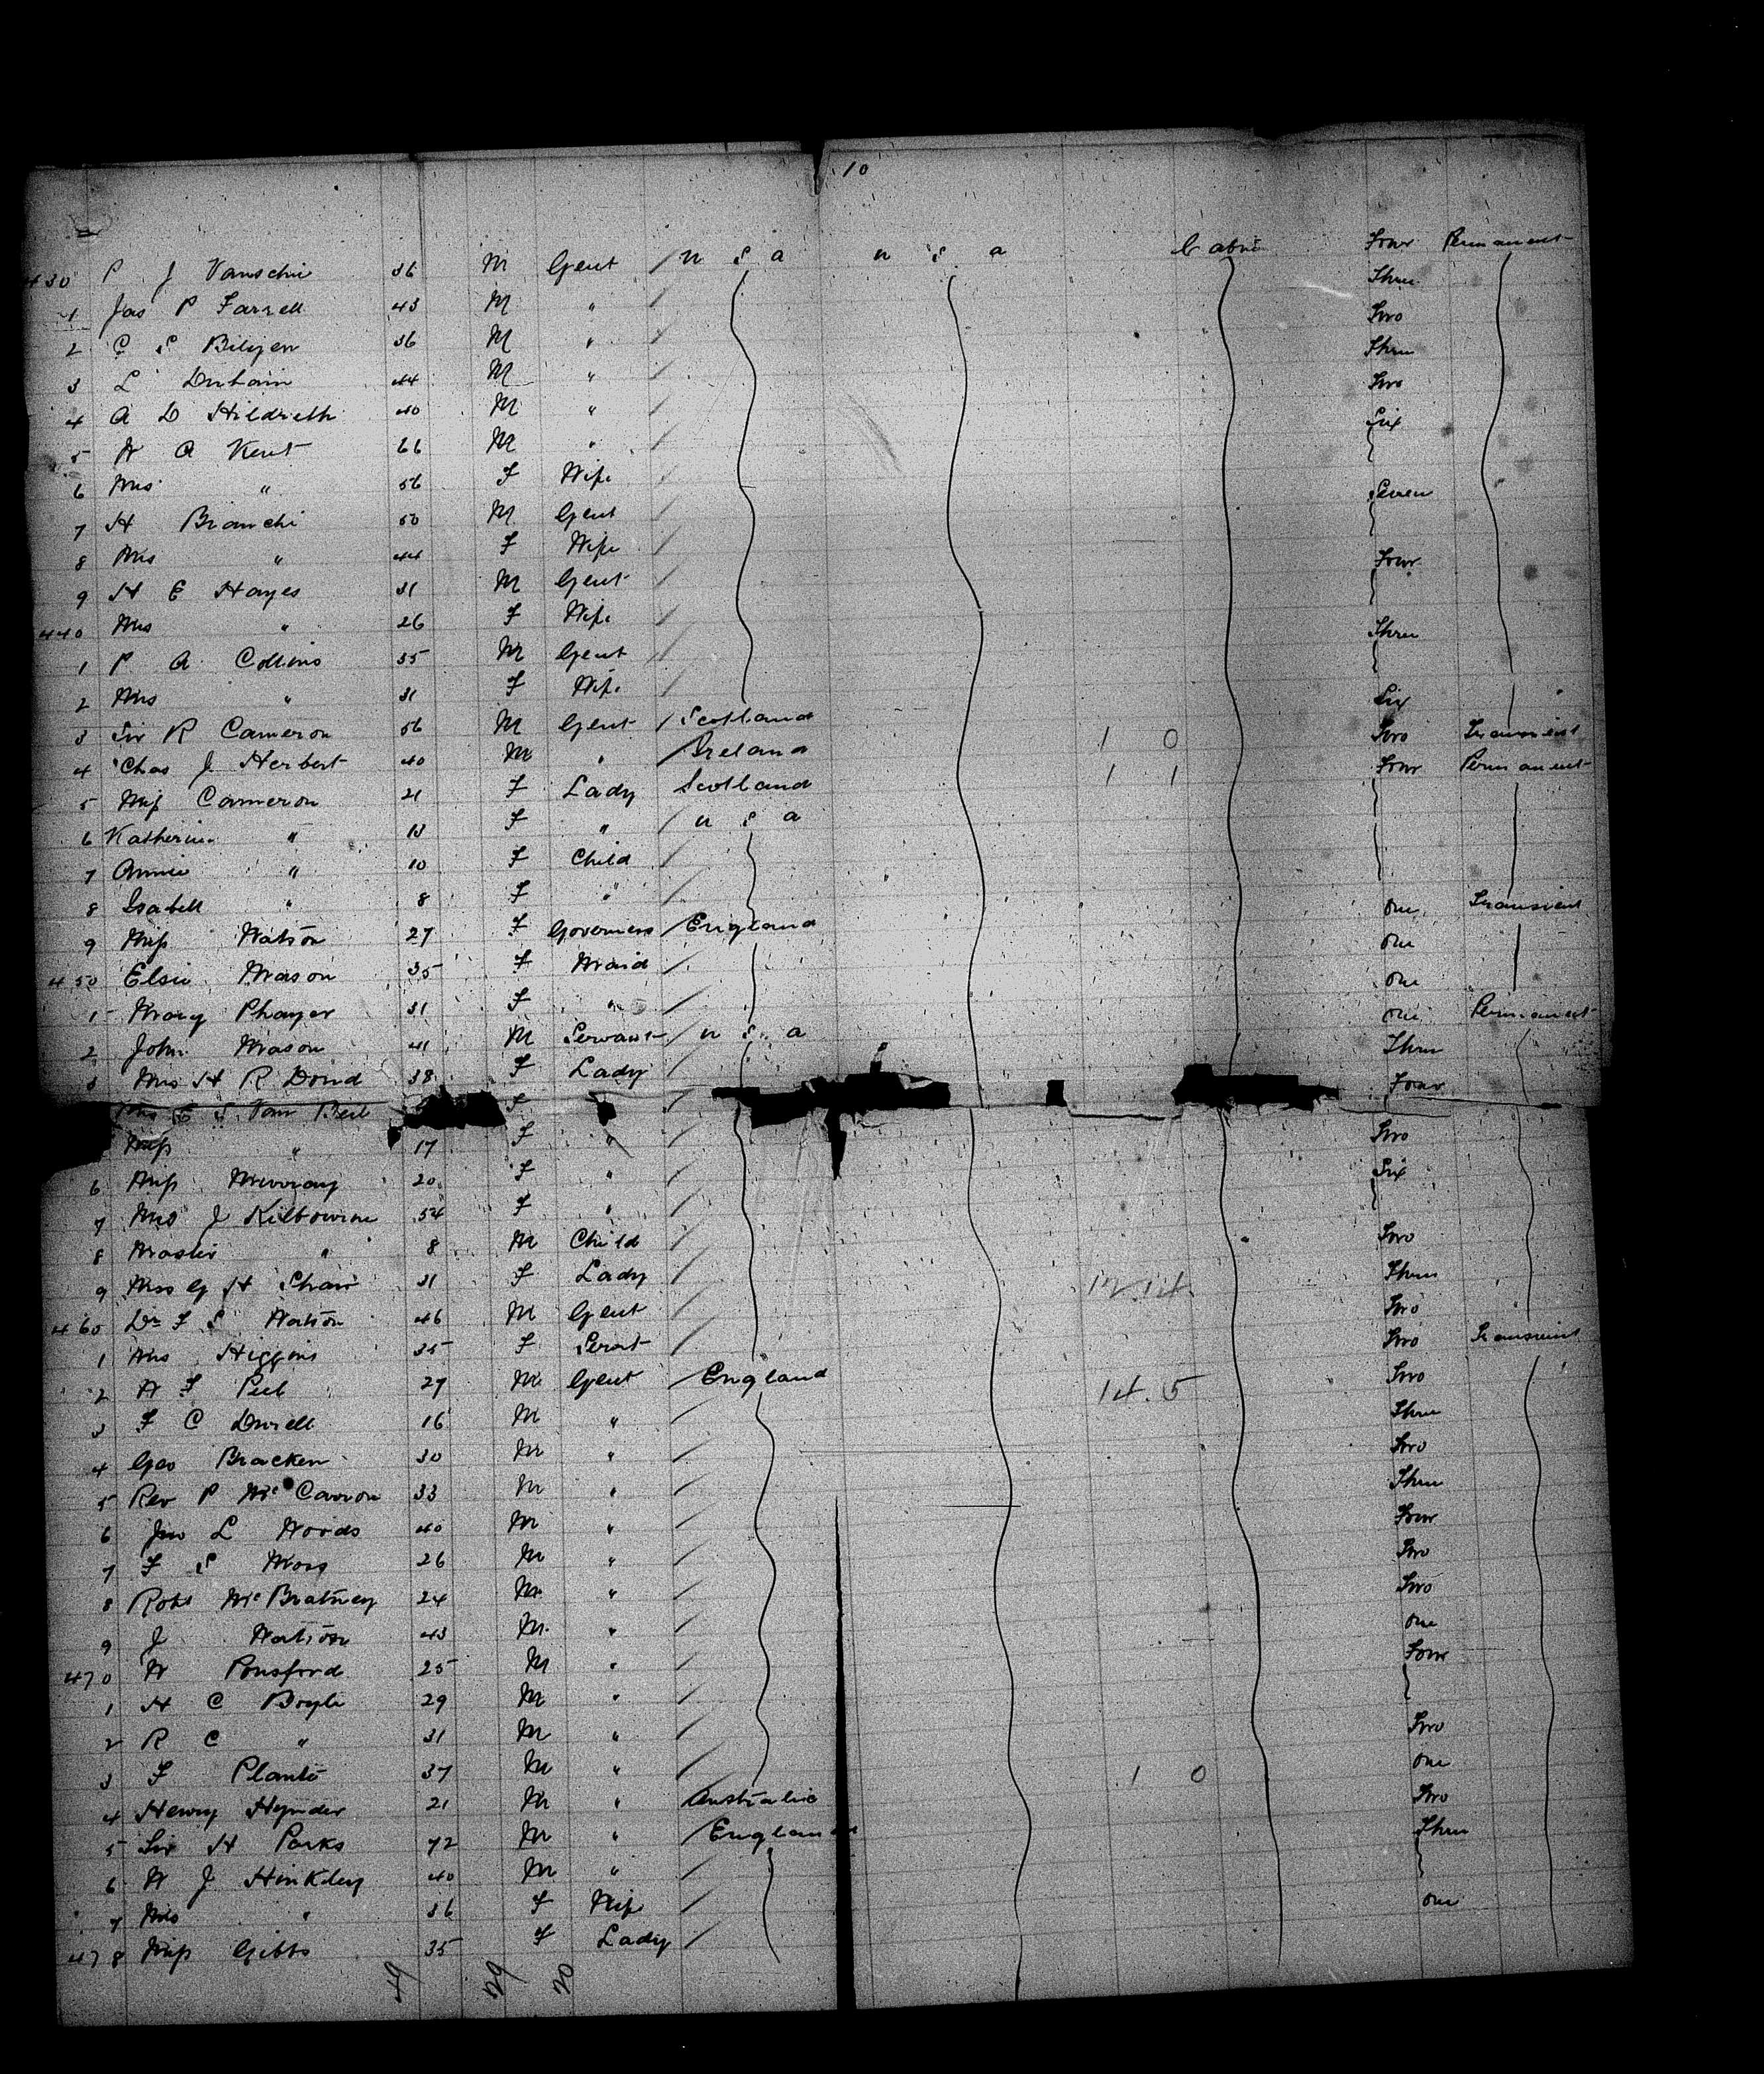 10
430 P J Vanschi 36 M Gent / U S A U S A Cabin Four Permanent
1 Jas P Farrell 43 M " / Three
2 C S Bilyen 36 M " / Two
3 L 44 M " / Three
4 A D Hildreth 40 M " / Two
5 W A Kent 66 M " / Six
6 Mrs " 56 F Wife /
7 H Bianchi 50 M Gent / Seven
8 Mrs " 44 F Wife /
9 H E Hayes 31 M Gent / Four
440 Mrs " 26 F Wife /
1 P A Collins 35 M Gent / Three
2 Mrs " 31 F Wife /
3 Sir R Cameron 56 M Gent / Scotland Six
4 Chas J Herbert 40 M " / Ireland 1 0 Two Transient
5 Miss Cameron 21 F Lady Scotland 1 1 Four Permanent
6 Katherin " 13 F " / U S A
7 Annie " 10 F Child /
8 Isabell " 8 F " /
9 Miss Watson 27 F Governess / England One Transient
450 Elsie Mason 35 F Maid / One
1 Mary Phayer 31 F " / One
2 John Mason 41 M Servant / U S A One Permanent
3 Mrs H R Dond 38 F Lady / Three
Mrs E S Van Beil F / Four
Miss " 17 F " / Two
6 Miss Murray 20 F " / Six
7 Mrs J Kilbourne 54 F " /
8 Master " 8 M Child / Two
9 Mrs G H Shaw 31 F Lady / 12.14. Three
460 Dr F S Watson 46 M Gent / Two
1 Mrs Higgins 35 F Servt / Two Transient
2 W F Peel 27 M Gent / England 14.5 Two
3 F C Durell 16 M " / Three
4 Geo Bracken 30 M " / Two
5 Rev P Mc Carron 33 M " / Three
6 Jno L Woods 40 M " / Four
7 F S Moss 26 M " / Two
8 Robt McBratney 24 M " / Two
9 J Watson 43 M " / One
470 W Ponsford 25 M " / Four
1 H C Boyle 29 M " /
2 R C " 31 M " / Two
3 F Planté 37 M " / 1 0 One
4 Henry Hynder 21 M " Australia Two
5 Sir H Parks 72 M " / England Three
6 W J Hinkley 40 M " /
7 Mrs " 36 F Wife / One
478 Miss Gibbs 35 F Lady /
49 29 20